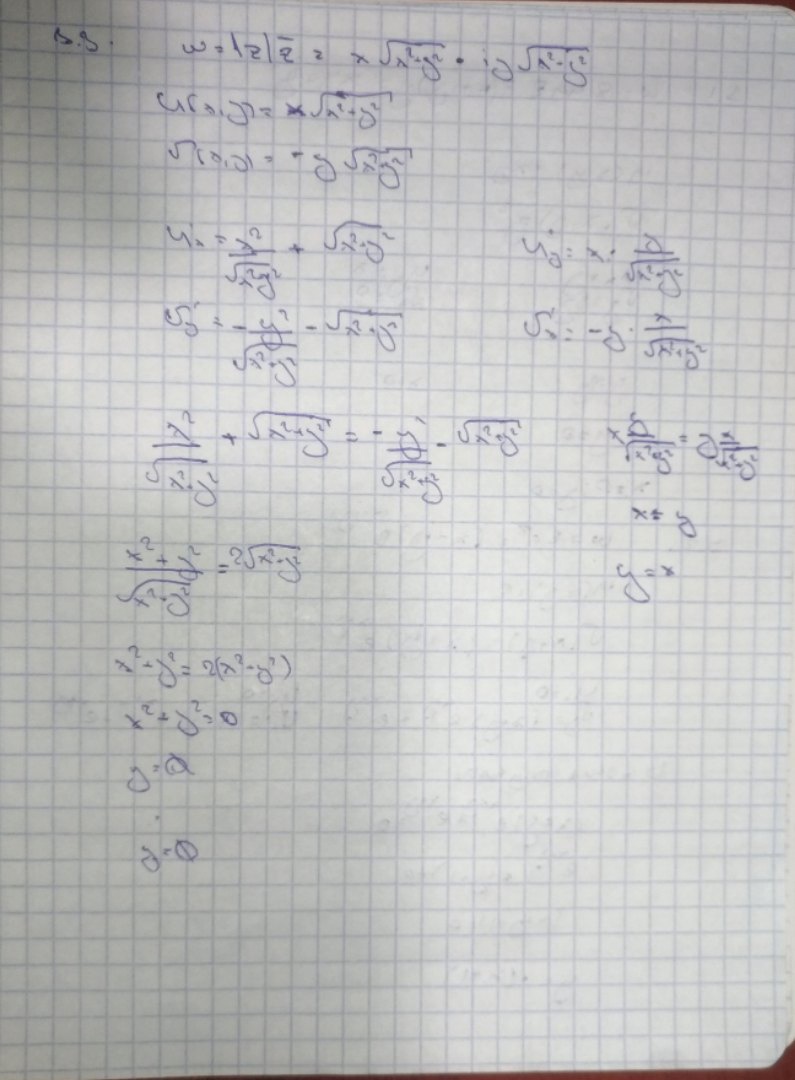 3.3. w = |z| z̄ = x √(x²+y²) - iy √(x²+y²)
u(x,y) = x √(x²+y²)
v(x,y) = -y √(x²+y²)
u'ₓ = x²/√(x²+y²) + √(x²+y²) u'ᵧ = x · y/√(x²+y²)
v'ᵧ = - y²/√(x²+y²) - √(x²+y²) v'ₓ = -y · x/√(x²+y²)
x²/√(x²+y²) + √(x²+y²) = - y²/√(x²+y²) - √(x²+y²) x y/√(x²+y²) = y x/√(x²+y²)
x = y
(x²+y²)/√(x²+y²) = 2√(x²+y²) y = x
x²+y² = 2(x²+y²)
x²+y² = 0
y = 0
y = 0